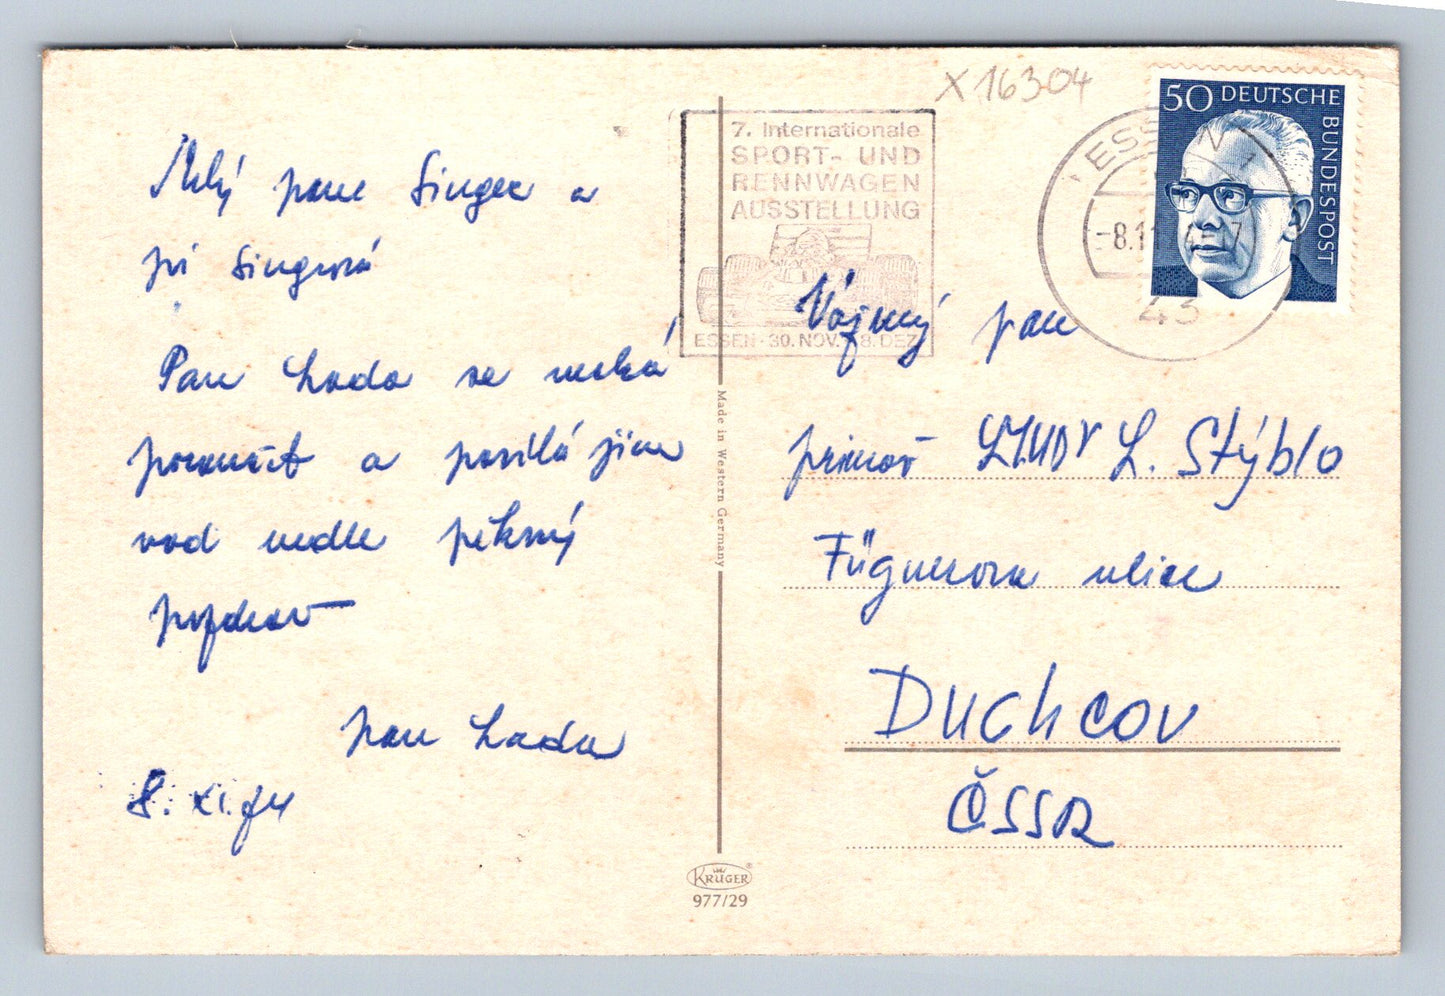 Milý pane Singer a
pí Singrová
Pan Lada se nechá
poroučet a posílá jim
vod nedle pěkný
pozdrav
pan Lada
8. XI. 74
X 16304
7. Internationale
SPORT- UND
RENNWAGEN
AUSSTELLUNG
ESSEN · 30. NOV. - 8. DEZ.
ESSEN 1
-8.11.
43
50 DEUTSCHE
BUNDESPOST
Vážený pan
primář MUDr L. Stýblo
ulice
DUCHCOV
ČSSR
Made in Western Germany
KRÜGER
977/29